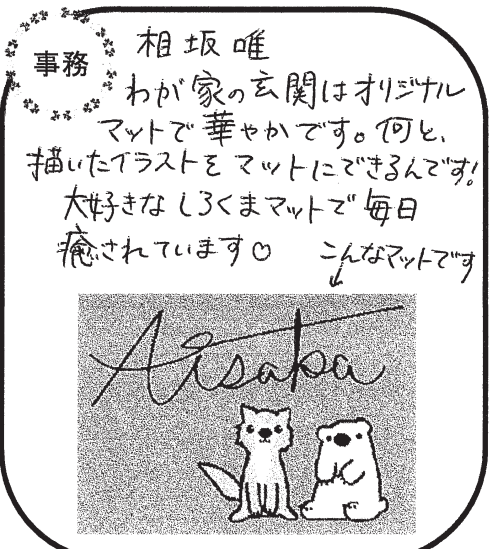 事務
相坂唯
わが家の玄関はオリジナル
マットで華やかです。何と、
描いたイラストをマットにできるんです!
大好きなしろくまマットで毎日
癒されています♡
こんなマットです
Aisaka